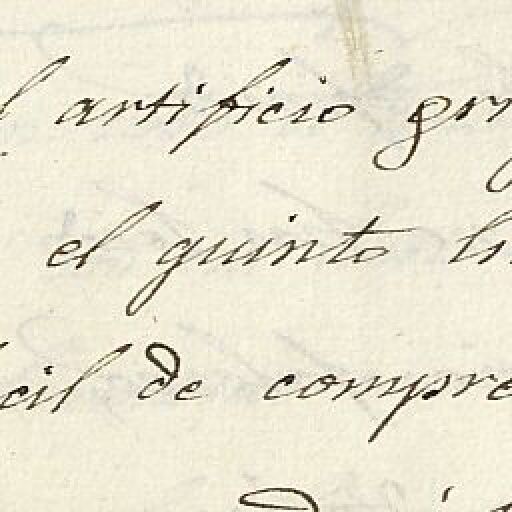 l artificio gr
el quinto li
cil de compre